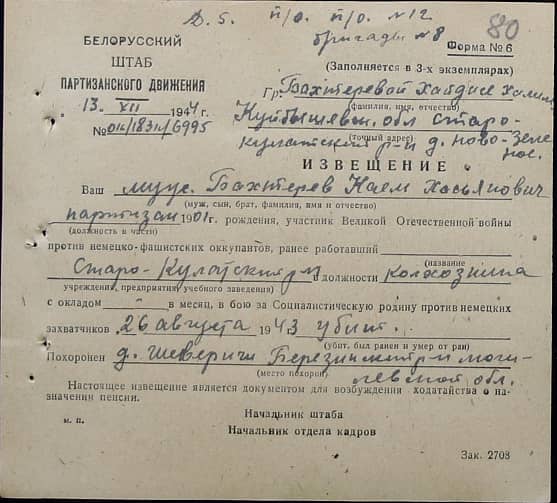 Д. 5. п/о. п/о. №12
бригады №8
80
БЕЛОРУССКИЙ
ШТАБ
ПАРТИЗАНСКОГО ДВИЖЕНИЯ
13. XII 1944 г.
№
Форма № 6
(Заполняется в 3-х экземплярах)
Гр. Бахтеревой
(фамилия, имя, отчество)
Куйбышевск. обл Старо-
(точный адрес)
кулаткский р-н д. Ново-Зеле
ное.
ИЗВЕЩЕНИЕ
Ваш муж. Бахтерев Наем Хасьянович
(муж, сын, брат, фамилия, имя и отчество)
партизан 1901 г. рождения, участник Великой Отечественной войны
(должность в части)
против немецко-фашистских оккупантов, ранее работавший
(название
Старо-Кулатский в должности колхозника
учреждения, предприятия, учебного заведения)
с окладом " в месяц, в бою за Социалистическую родину против немецких
захватчиков 26 августа 1943 убит.
(убит, был ранен и умер от ран)
Похоронен д. Шеверичи Березинский р-н Моги-
(место похорон)
левской обл.
Настоящее извещение является документом для возбуждения ходатайства о на-
значении пенсии.
Начальник штаба
м. п.
Начальник отдела кадров
Зак. 2708